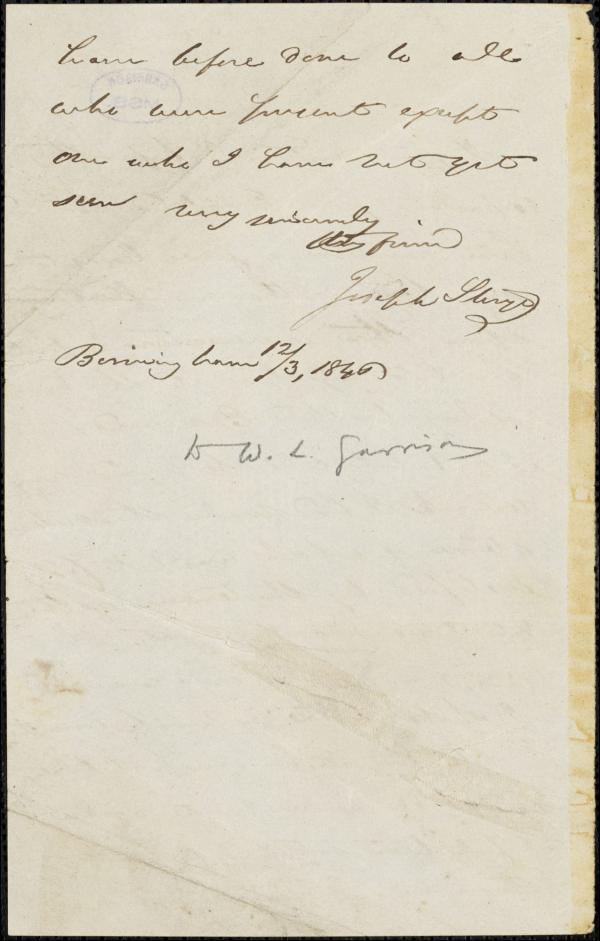 have before done to all
who were present except
one who I have not yet
seen very sincerely
thy friend
Joseph Sturge
Birmingham 12/3, 1840
To W. L. Garrison